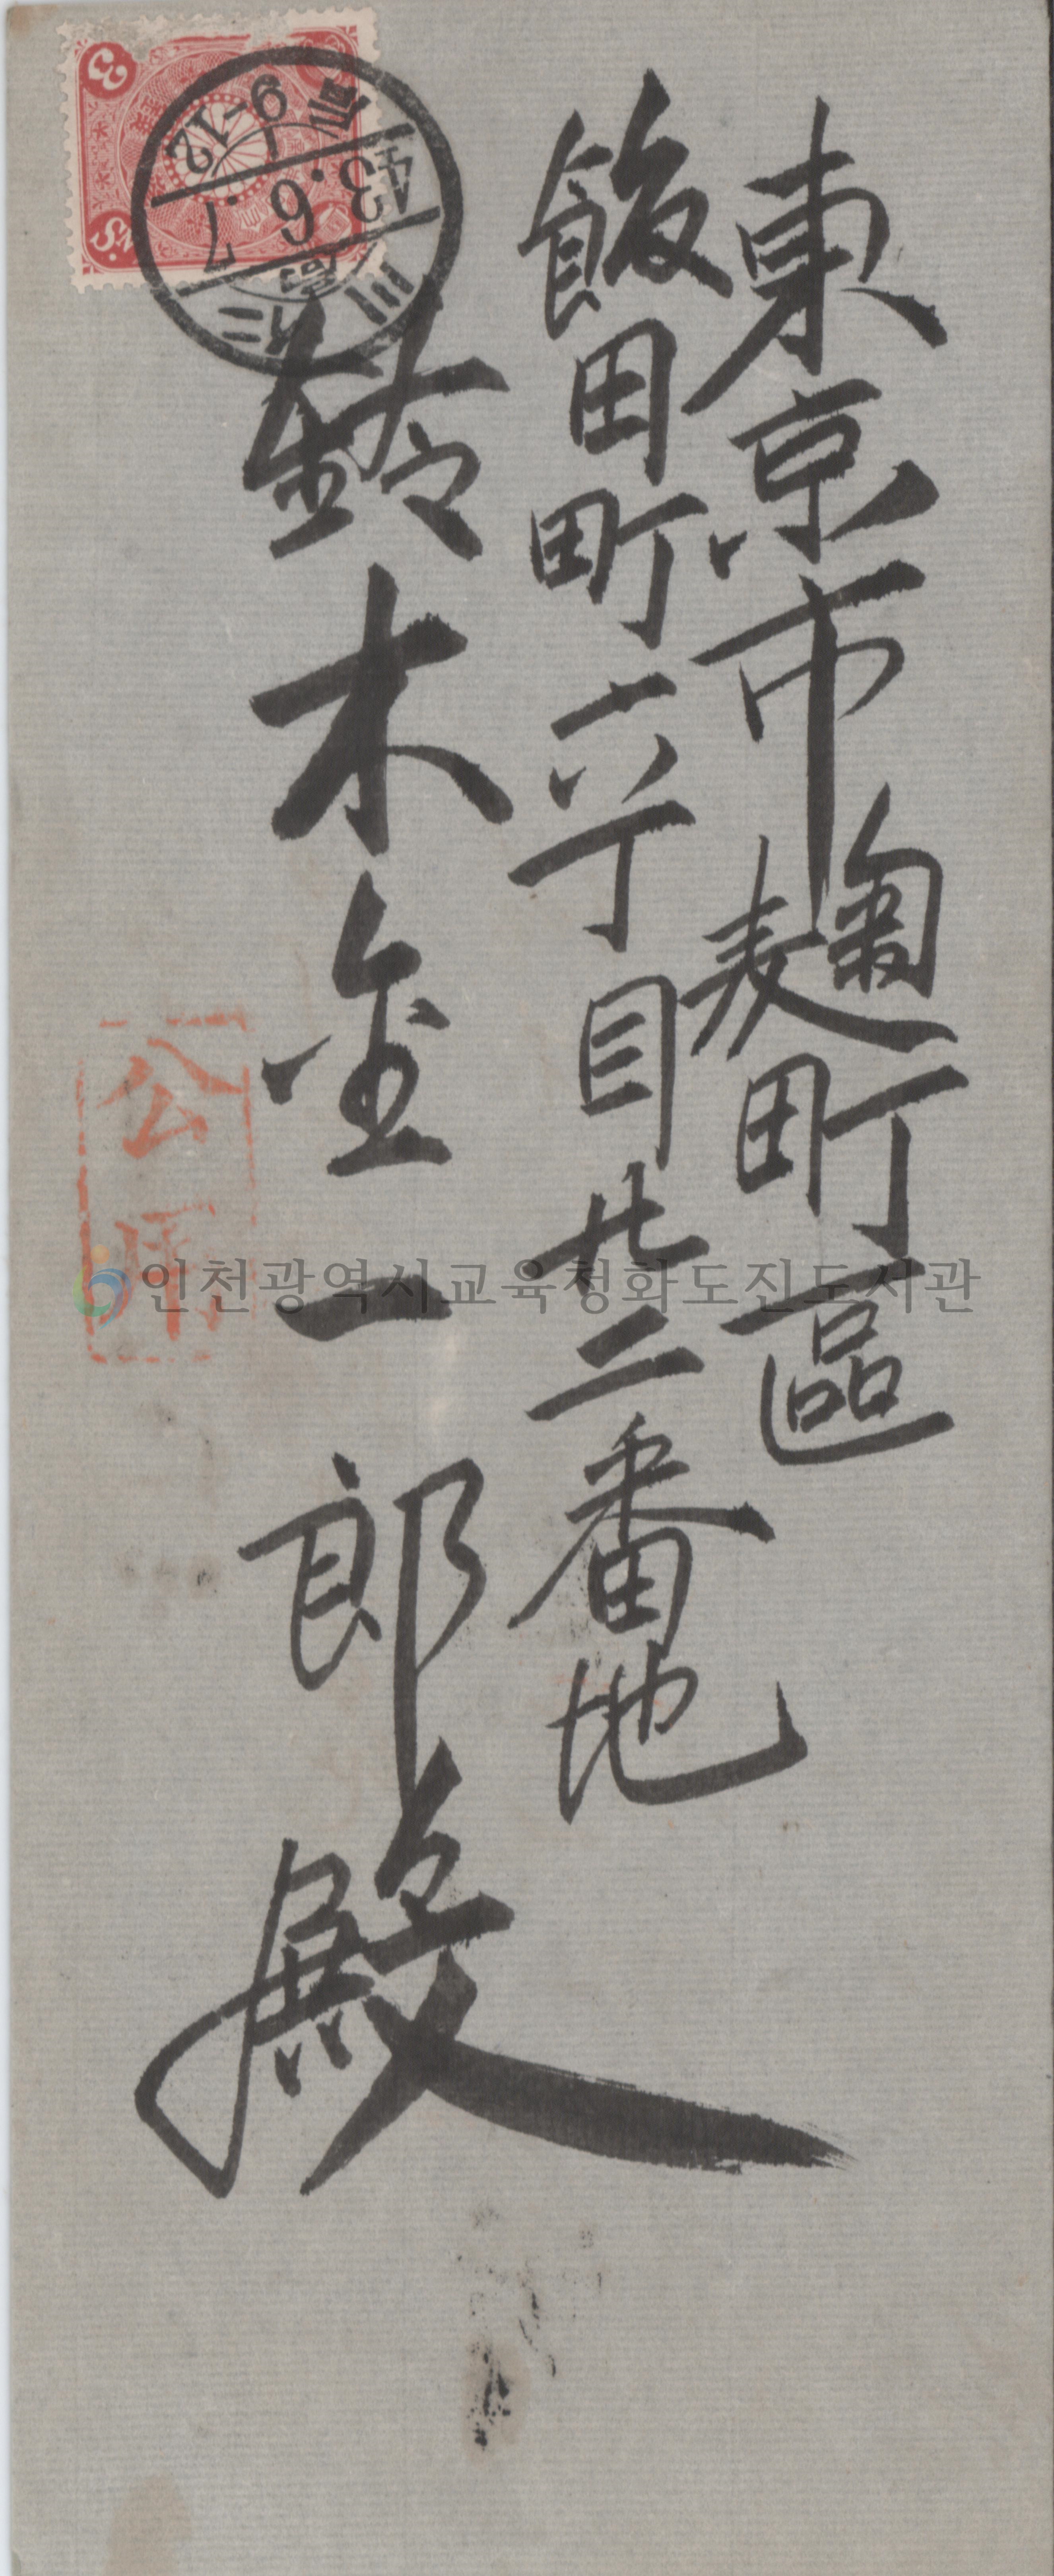 東京市麹町區
飯田町六丁目廿二番地
鈴木金一郎殿
公用
43.6.7
9-12
3
인천광역시교육청화도진도서관